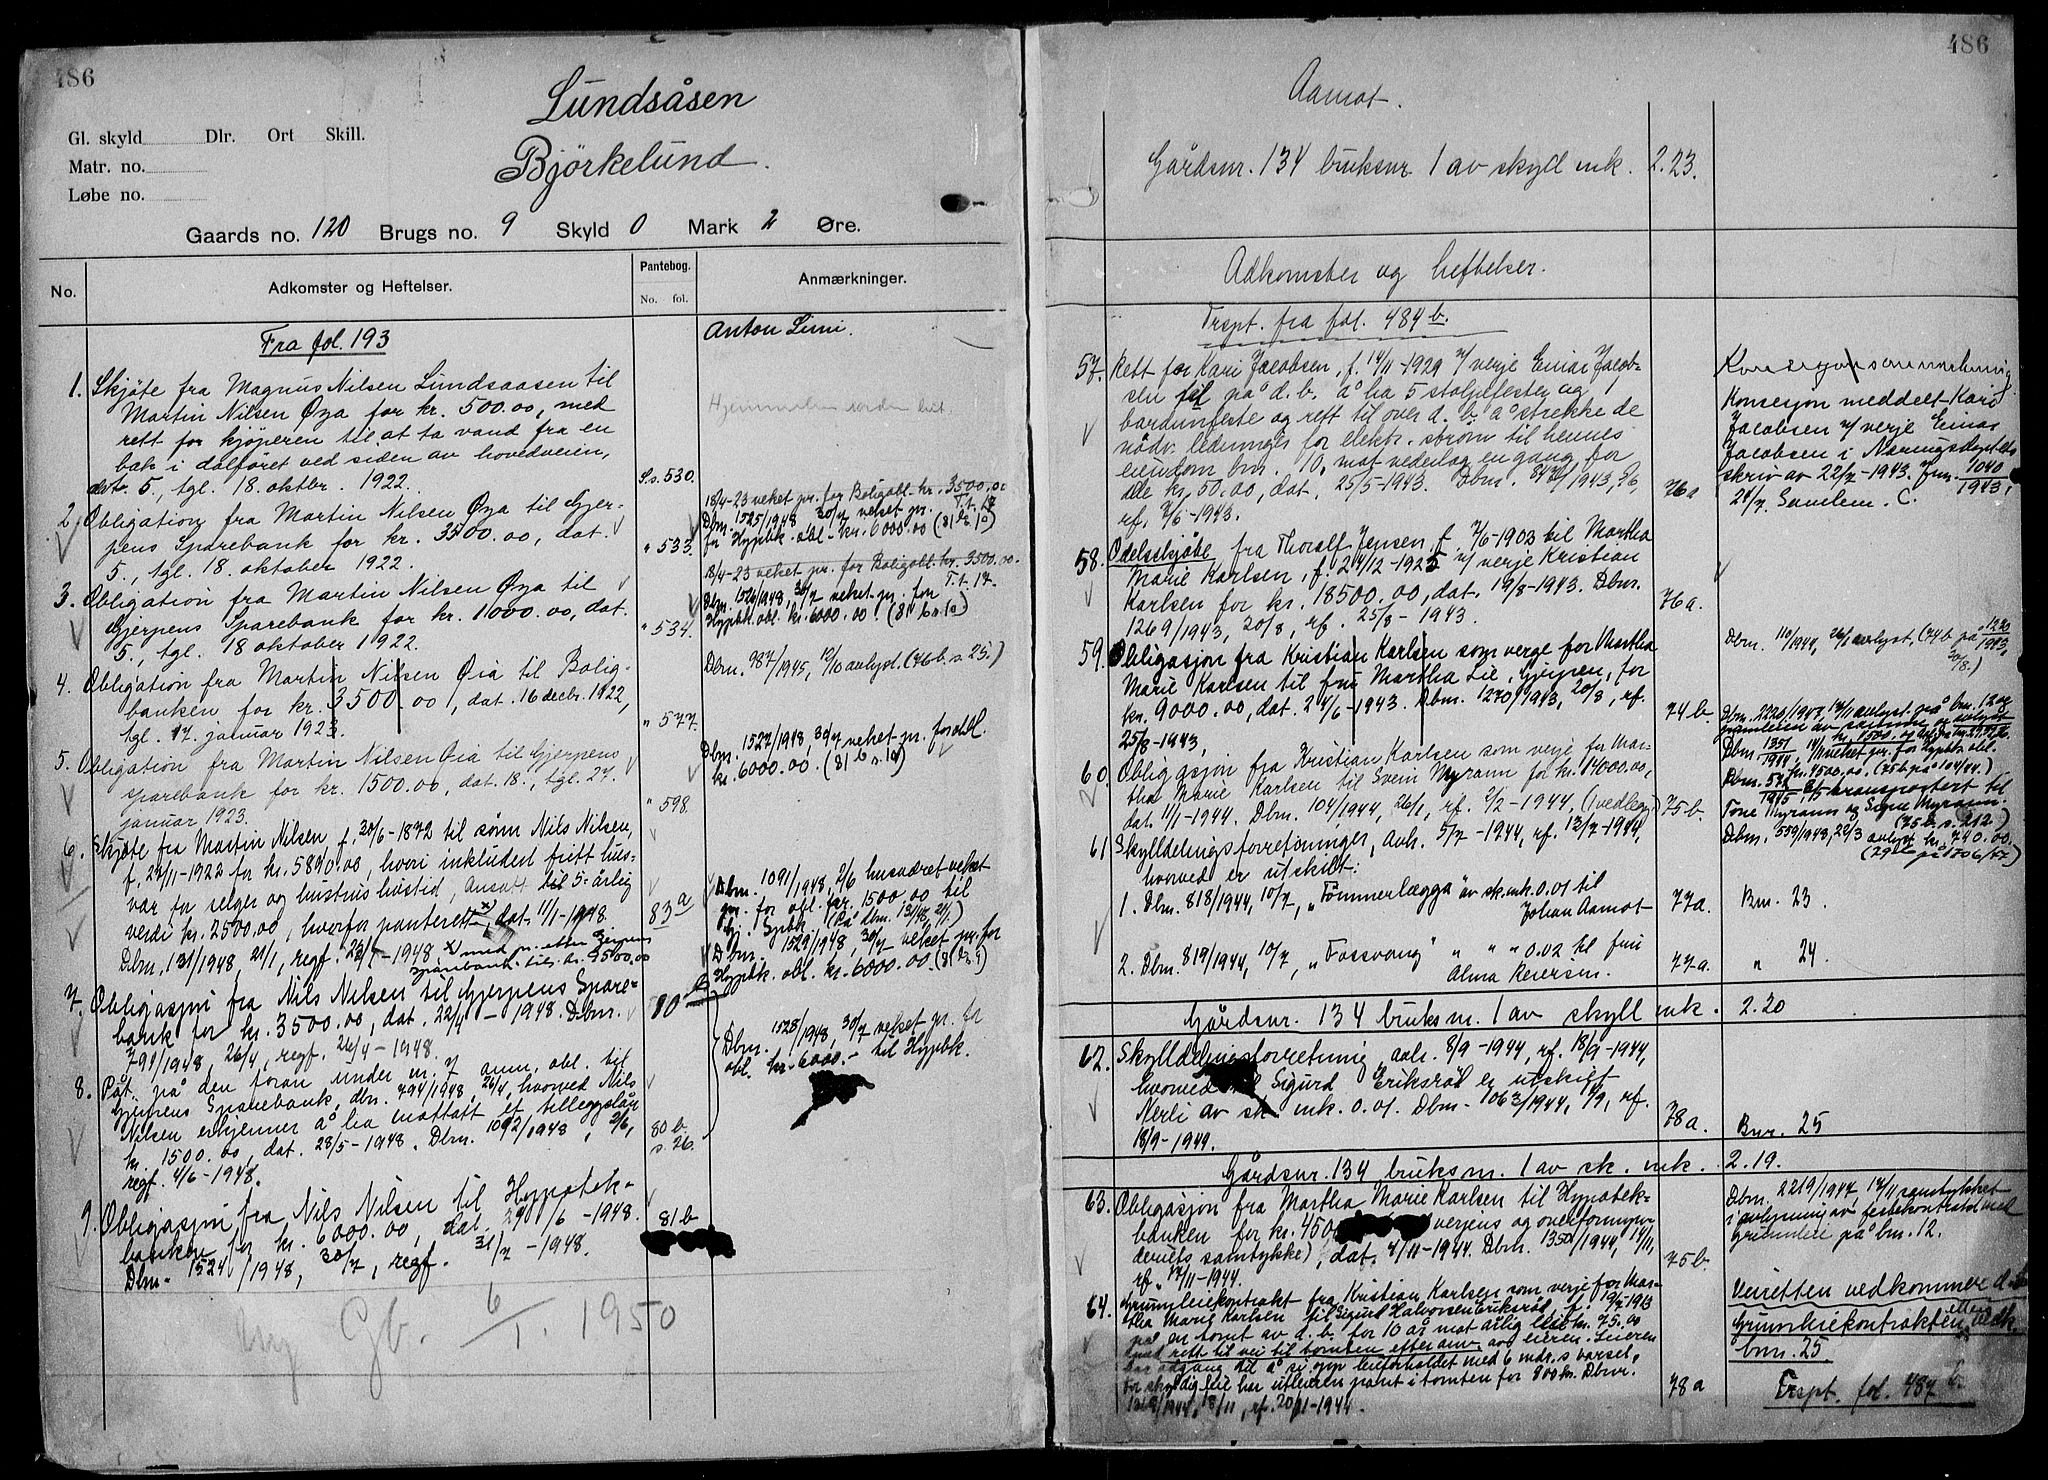 486
Lundsåsen
Bjørkelund.
Gl. skyld Dlr. Ort Skill.
Matr. no.
Løbe no.
Gaards no. 120 Brugs no. 9 Skyld 0 Mark 2 Øre.
No. Adkomster og Heftelser. Pantebog. No. fol. Anmærkninger.
Fra fol. 193
Anton Limi.
1. Skjøte fra Magnus Nilsen Lundsaasen til
Martin Nilsen Øya for kr. 500.00, med
rett for kjøperen til at ta vand fra en
bæk i dalføret ved siden av hovedveien,
dat. 5., tgl. 18. oktbr. 1922. S.s. 530.
2. Obligation fra Martin Nilsen Øya til Gjer-
pens Sparebank for kr. 3500.00, dat.
5., tgl. 18. oktober 1922. " 533.
18/4-23 veket pr. for Boligobl. kr. 3500.00
T.t. 17
Dbm. 1525/1948 30/7 veket pr.
for Hypbk. obl. kr. 6000.00 (81 b s. 10)
3. Obligation fra Martin Nilsen Øya til
Gjerpens Sparebank for kr. 1000.00, dat.
5., tgl. 18 oktober 1922. " 534.
18/4-23 veket pr. for Boligobl. kr. 3500.00.
T.t. 17.
Dbm. 1526/1948 30/7 veket pr. for
Hypbk. obl. kr. 6000.00. (81 b s. 10)
4. Obligation fra Martin Nilsen Øia til Bolig-
banken for kr. 3500.00, dat. 16 decbr. 1922,
tgl. 17. januar 1923. " 577.
Dbm. 987/1945, 12/10 avlyst. (76b. s 25.)
5. Obligation fra Martin Nilsen Øia til Gjerpens
sparebank for kr. 1500.00, dat. 18., tgl. 27.
januar 1923. " 598.
Dbm. 1527/1948, 30/7 veket pr. for obl.
kr. 6000.00. (81 b s. 10)
6. Skjøte fra Martin Nilsen, f. 30/6-1872 til sønn Nils Nilsen,
f. 27/11-1922 for kr. 5890.00, hvori inkludert fritt hus-
vær for selger og hustrus livstid, ansatt til 5-årlig
verdi kr. 2500.00, hvorfor panterett x), dat. 11/1-1948.
Dbm. 131/1948, 21/1, regf. 26/1-1948. x) med pr. etter Gjerpens
sparebank til kr. 3500.00 83a
Dbm. 1091/1948, 2/6 husværet veket
pr. for obl. kr. 1500.00 til
Gj. Spbk (På dbm. 131/48, 21/1.)
Dbm. 1529/1948, 30/7 veket pr. for
Hypbk. obl. kr. 6000.00. (81 b s. 9)
7. Obligasjon fra Nils Nilsen til Gjerpens Spare-
bank for kr. 3500.00, dat. 22/4-1948. Dbm.
791/1948, 26/4, regf. 26/4-1948. 80 b
8. Påt. på den foran under nr. 7 anm. obl. til
Gjerpens Sparebank, dbm. 791/1948, 26/4, hvorved Nils
Nilsen erkjenner å ha mottatt et tilleggslån
kr. 1500.00, dat. 28/5-1948. Dbm. 1092/1948, 2/6,
regf. 4/6-1948. 80 b. s. 26.
Dbm. 1528/1948, 30/7 veket pr. for
obl. kr. 6000.- til Hypbk.
9. Obligasjon fra Nils Nilsen til Hypotek-
banken for kr. 6000.00, dat. 29/6-1948.
Dbm. 1524/1948, 30/7, regf. 31/7-1948. 81 b
Ny Gb. 6/1. 1950
486
Aamot.
Gårdsnr. 134 bruksnr. 1 av skyld mk. 2.23.
Adkomster og heftelser.
Trspt. fra fol. 484 b.
57. Rett for Kari Jacobsen, f. 14/11-1929 v/ verje Einar Jacob-
sen til på d. b. å ha 5 stolpefester og
bardunfeste og rett til over d. b. å strekke de
nødv. ledninger for elektr. strøm til hennes
eiendom bnr. 10, mot vederlag en gang for
alle kr. 50.00, dat. 25/5-1943. Dbm. 847/1943, 2/6,
rf. 7/6-1943. 76a
Konsesjonsanmerkning
Konsesjon meddelt Kari
Jacobsen v/ verje Einar
Jacobsen i Næringsdeptets
skriv av 22/7-1943. Jnr. 1040/1943,
28/7. Samlem. C.
58. Odelsskjøte fra Thorolf Jensen f. 7/6-1903 til Martha
Marie Karlsen, f. 24/12-1925 v/ verje Kristian
Karlsen for kr. 18500.00, dat. 19/8-1943. Dbm.
1269/1943, 20/8, rf. 25/8-1943. 76a.
59. Obligasjon fra Kristian Karlsen som verge for Martha
Marie Karlsen til fru Martha Lie, Gjerpen, for
kr. 9000.00, dat. 24/6-1943. Dbm. 1270/1943, 20/8, rf.
25/8-1943. 74 b
Dbm. 110/1944, 26/1 avlyst. (74 b på 1270/1943, 20/8.)
60. Obligasjon fra Kristian Karlsen som verje for Mar-
tha Marie Karlsen til Svein Myrann for kr. 14000.00,
dat. 11/1-1944. Dbm. 104/1944, 26/1, rf. 2/2-1944. (1 vedlegg) 75 b.
Dbm. 1351/1944, 14/11 veket pr. for Hypbk. obl.
kr. 4500.00. (75 b på 104/44.)
transportert til
Tone Myrann og Signe Myrann.
(75 b. s. 212)
Dbm. 559/1948, 22/3 avlyst kr. 740.00.
61 Skylddelingsforretninger, avh. 5/7-1944, rf. 12/7-1944,
hvorved er utskilt:
1. Dbm. 818/1944, 10/7, „Tømmerlægga" av sk. mk. 0.01 til
Johan Aamot 77a. Bnr. 23.
2. Dbm. 819/1944, 10/7, „Fossvang" " " " 0.02 til fru
Alma Reiersen. 77a. " 24.
Gårdsnr. 134 bruksnr. 1 av skyll mk. 2.20
62. Skylldelingsforretning, avh. 8/9-1944, rf. 18/9-1944,
hvorved til Sigurd Eriksrød er utskilt
Nerli av sk mk. 0.01. Dbm. 1063/1944, /9, rf.
18/9-1944. 78a. Bnr. 25
Gårdsnr. 134 bruksnr. 1 av sk. mk. 2.19.
63. Obligasjon fra Martha Marie Karlsen til Hypotek-
banken for kr. 450 verjens og overformynn-
deriets samtykke), dat. 4/11-1944. Dbm. 1350/1944, 14/11,
rf. 17/11-1944. 75 b.
Dbm. 2219/1947, 14/11 samtykket
i avlysning av festekontrakt med
grunnleie på bnr. 12.
64. Grunnleiekontrakt fra Kristian Karlsen som verje for Mar-
tha Marie Karlsen til Sigurd Halvorsen Eriksrød, f. 19/7-1913
på en tomt av d. b. for 10 år mot årlig leie kr. 75.00
med rett til vei til tomten efter anv. av eieren. Leieren
har adgang til å si opp leieforholdet med 6 mdr.s varsel,
for skyldig leie har utleieren pant i tomten for 900 kr. Dbm.
/1944, 18/11, rf. 20/11-1944. 78a
Veiretten vedkommer d. b.
Grunnleiekontrakten etter vedk.
bnr. 25.
Trspt. fol. 487 b.